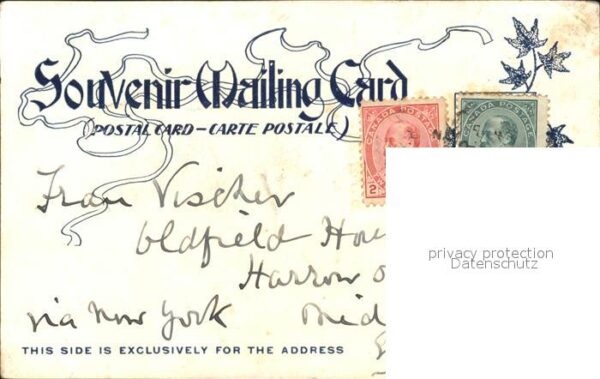 Souvenir Mailing Card
(POSTAL CARD – CARTE POSTALE)
CANADA POSTAGE
CANADA POSTAGE
2
Frau Vischer
Oldfield Hou
Harrow o
via New York Mid
privacy protection
Datenschutz
THIS SIDE IS EXCLUSIVELY FOR THE ADDRESS